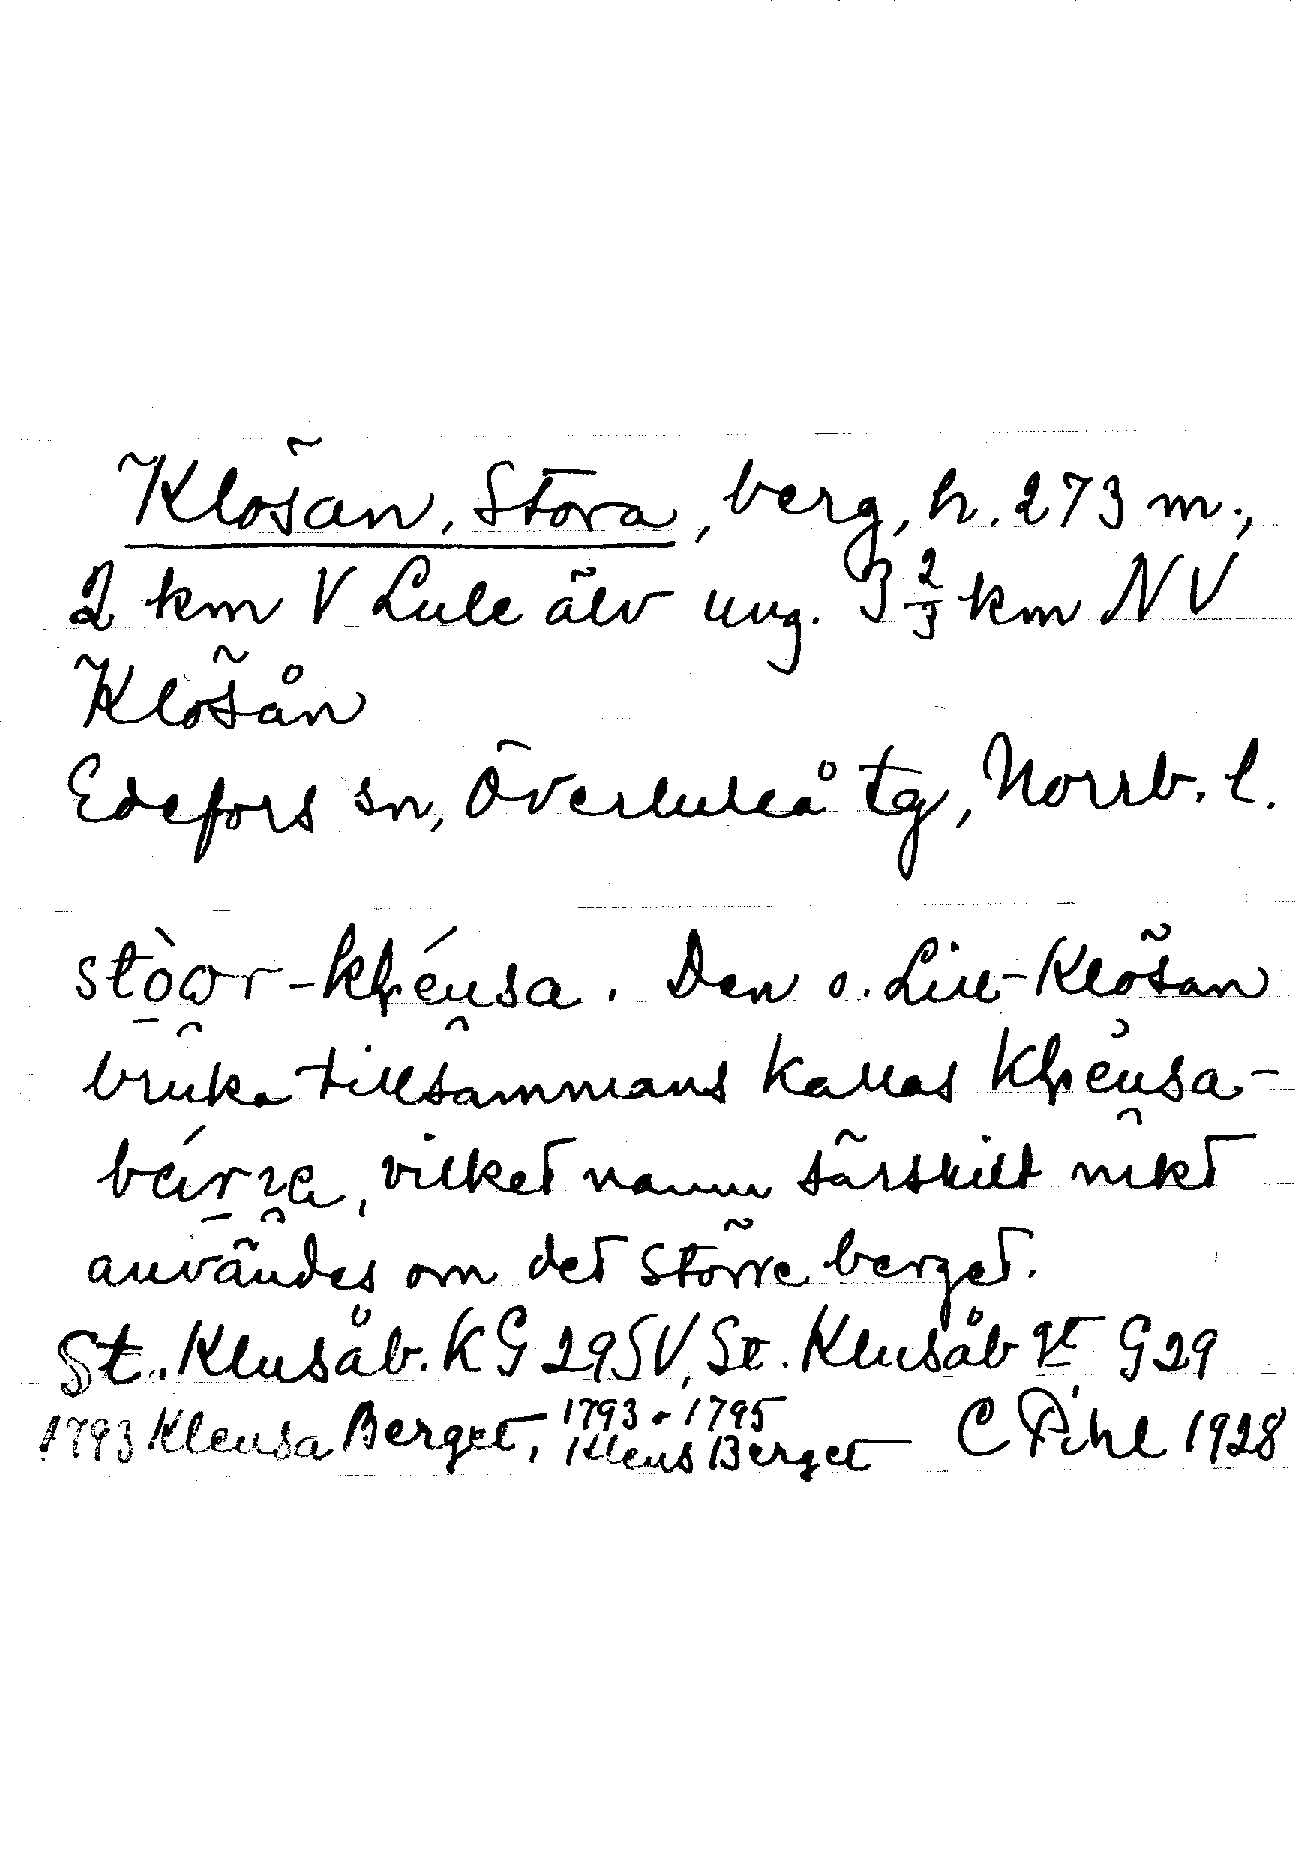 Klösan, Stora, berg, h. 273 m.,
2 km V Lule älv ung. 3 2/3 km NV
Klösån
Edefors sn, Överluleå tg, Norrb. l.
stòωr-kḷéusa. Den o. Lill-Klösan
bruka tillsammans kallas kḷèusa-
bárʒa, vilket namn särskilt nikt
användes om det större berget.
St. Klusåb. KG 29SV, St. Klusåb gt G29
1793 Kleusa Berget, 1793 o 1795 Kleus Berget C Pihl 1928